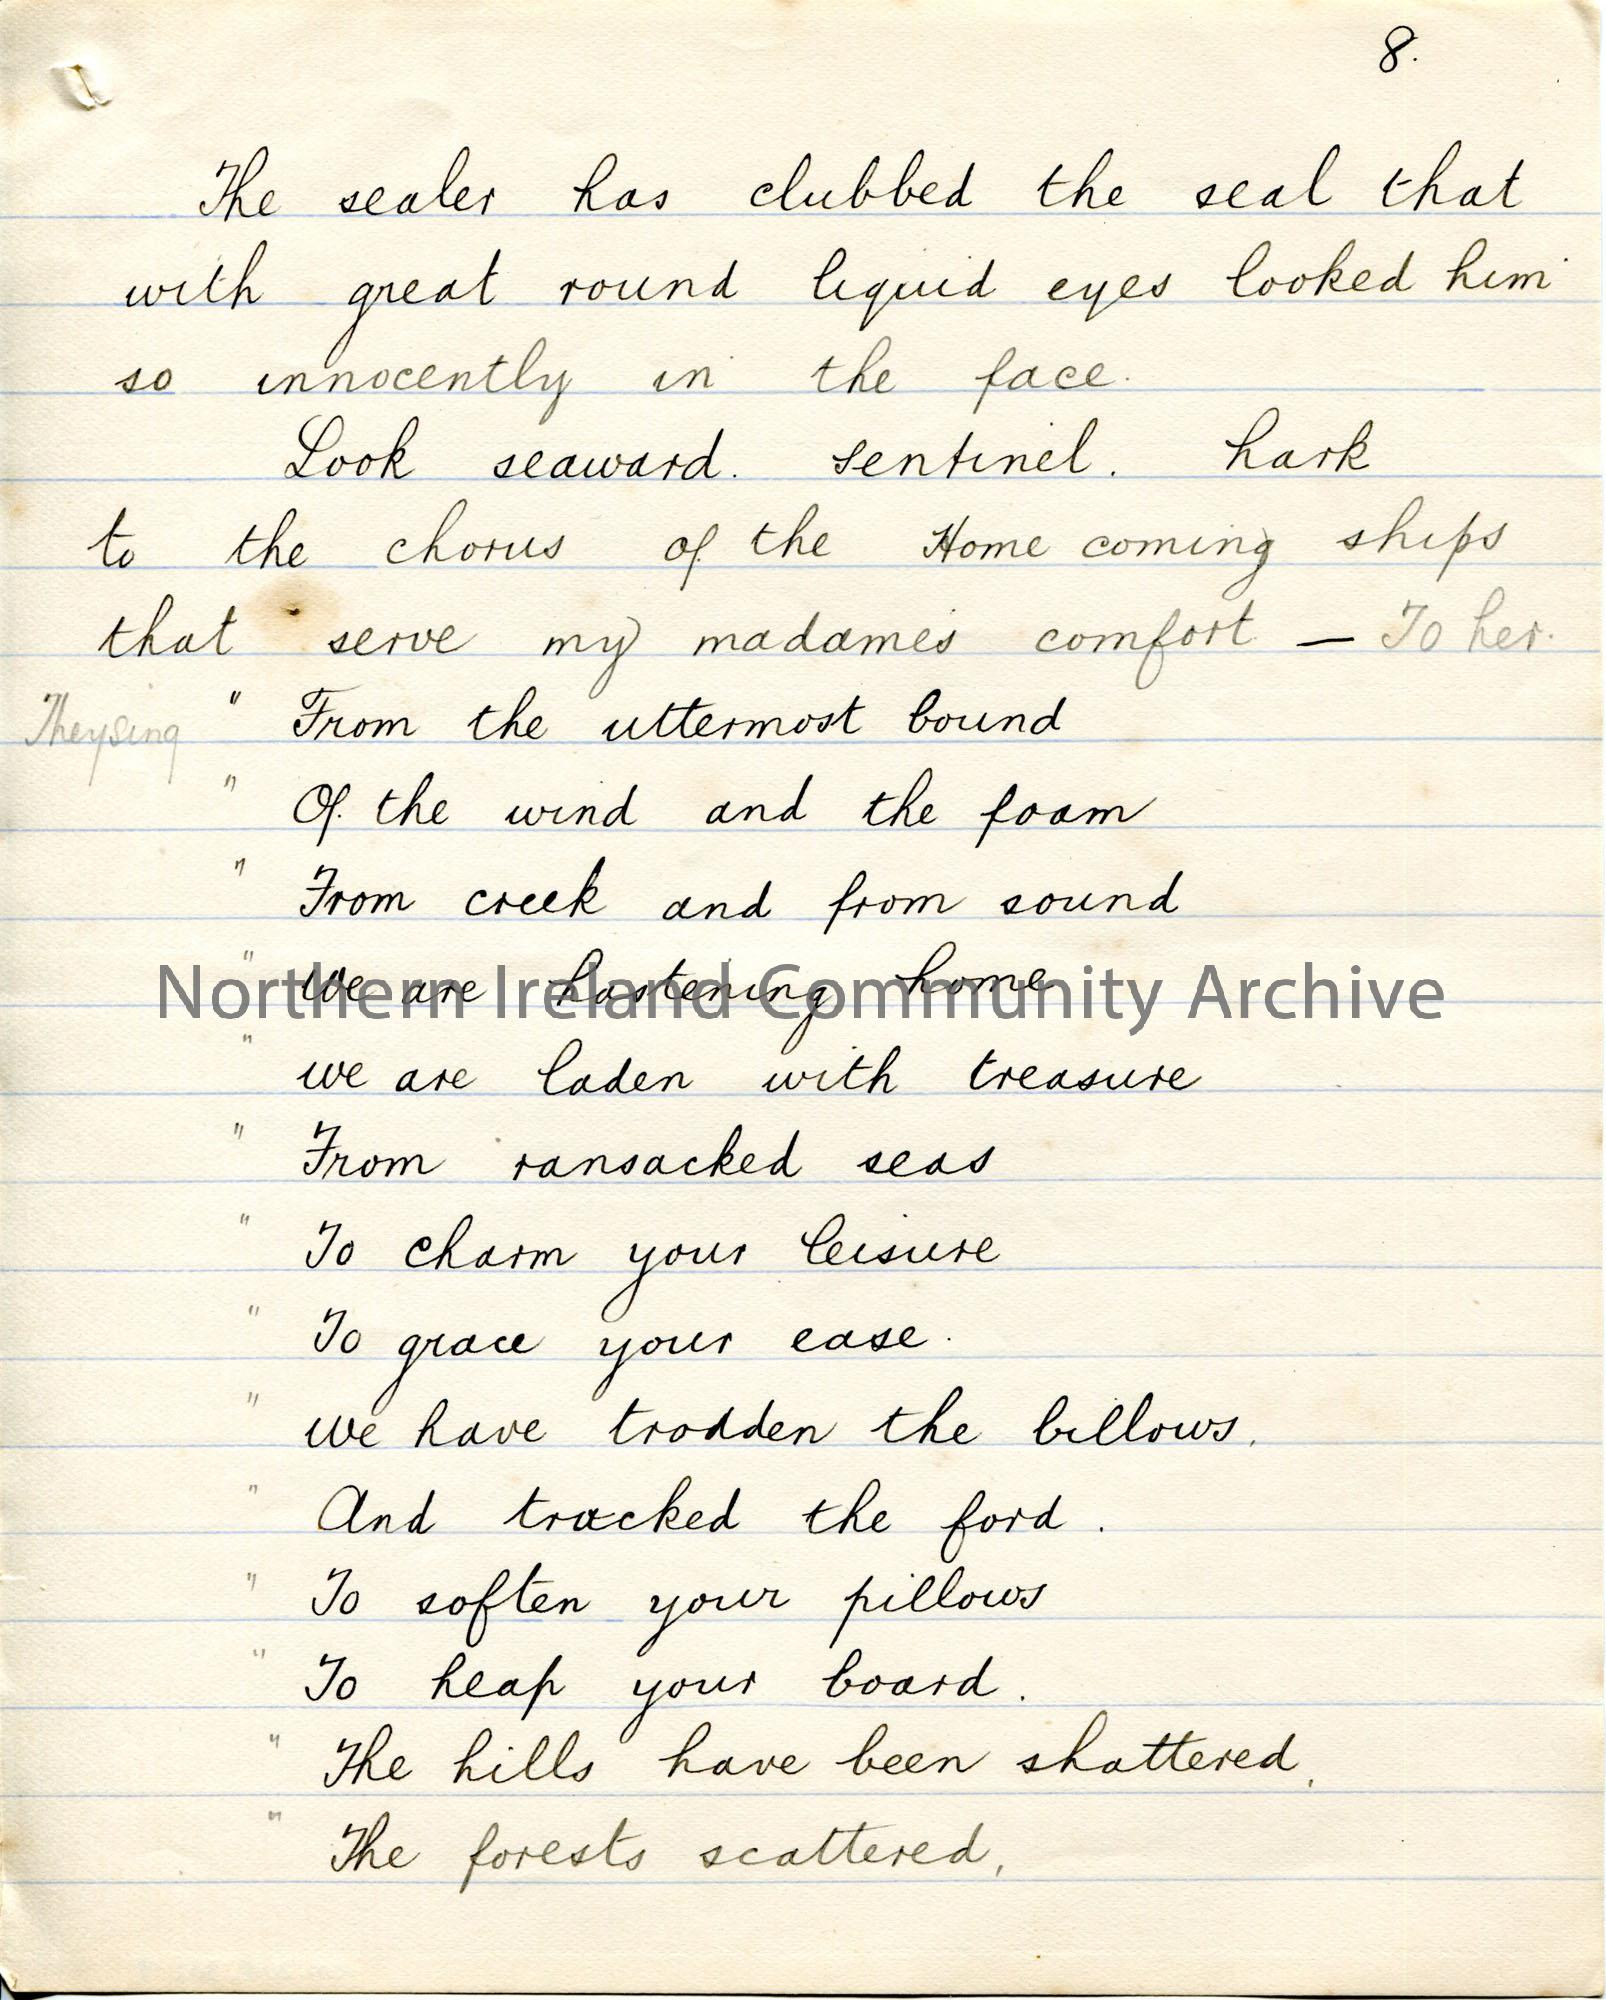 8.
The sealer has clubbed the seal that
with great round liquid eyes looked him
so innocently in the face.
Look seaward. sentinel. hark
to the chorus of the Home coming ships
that serve my madames comfort — To her.
They sing " From the uttermost bound
" Of the wind and the foam
" From creek and from sound
" We are hastening home
Northern Ireland Community Archive
" we are laden with treasure
" From ransacked seas
" To charm your leisure
" To grace your ease.
" we have trodden the billows,
" And tracked the ford.
" To soften your pillows
" To heap your board.
" The hills have been shattered,
" The forests scattered,